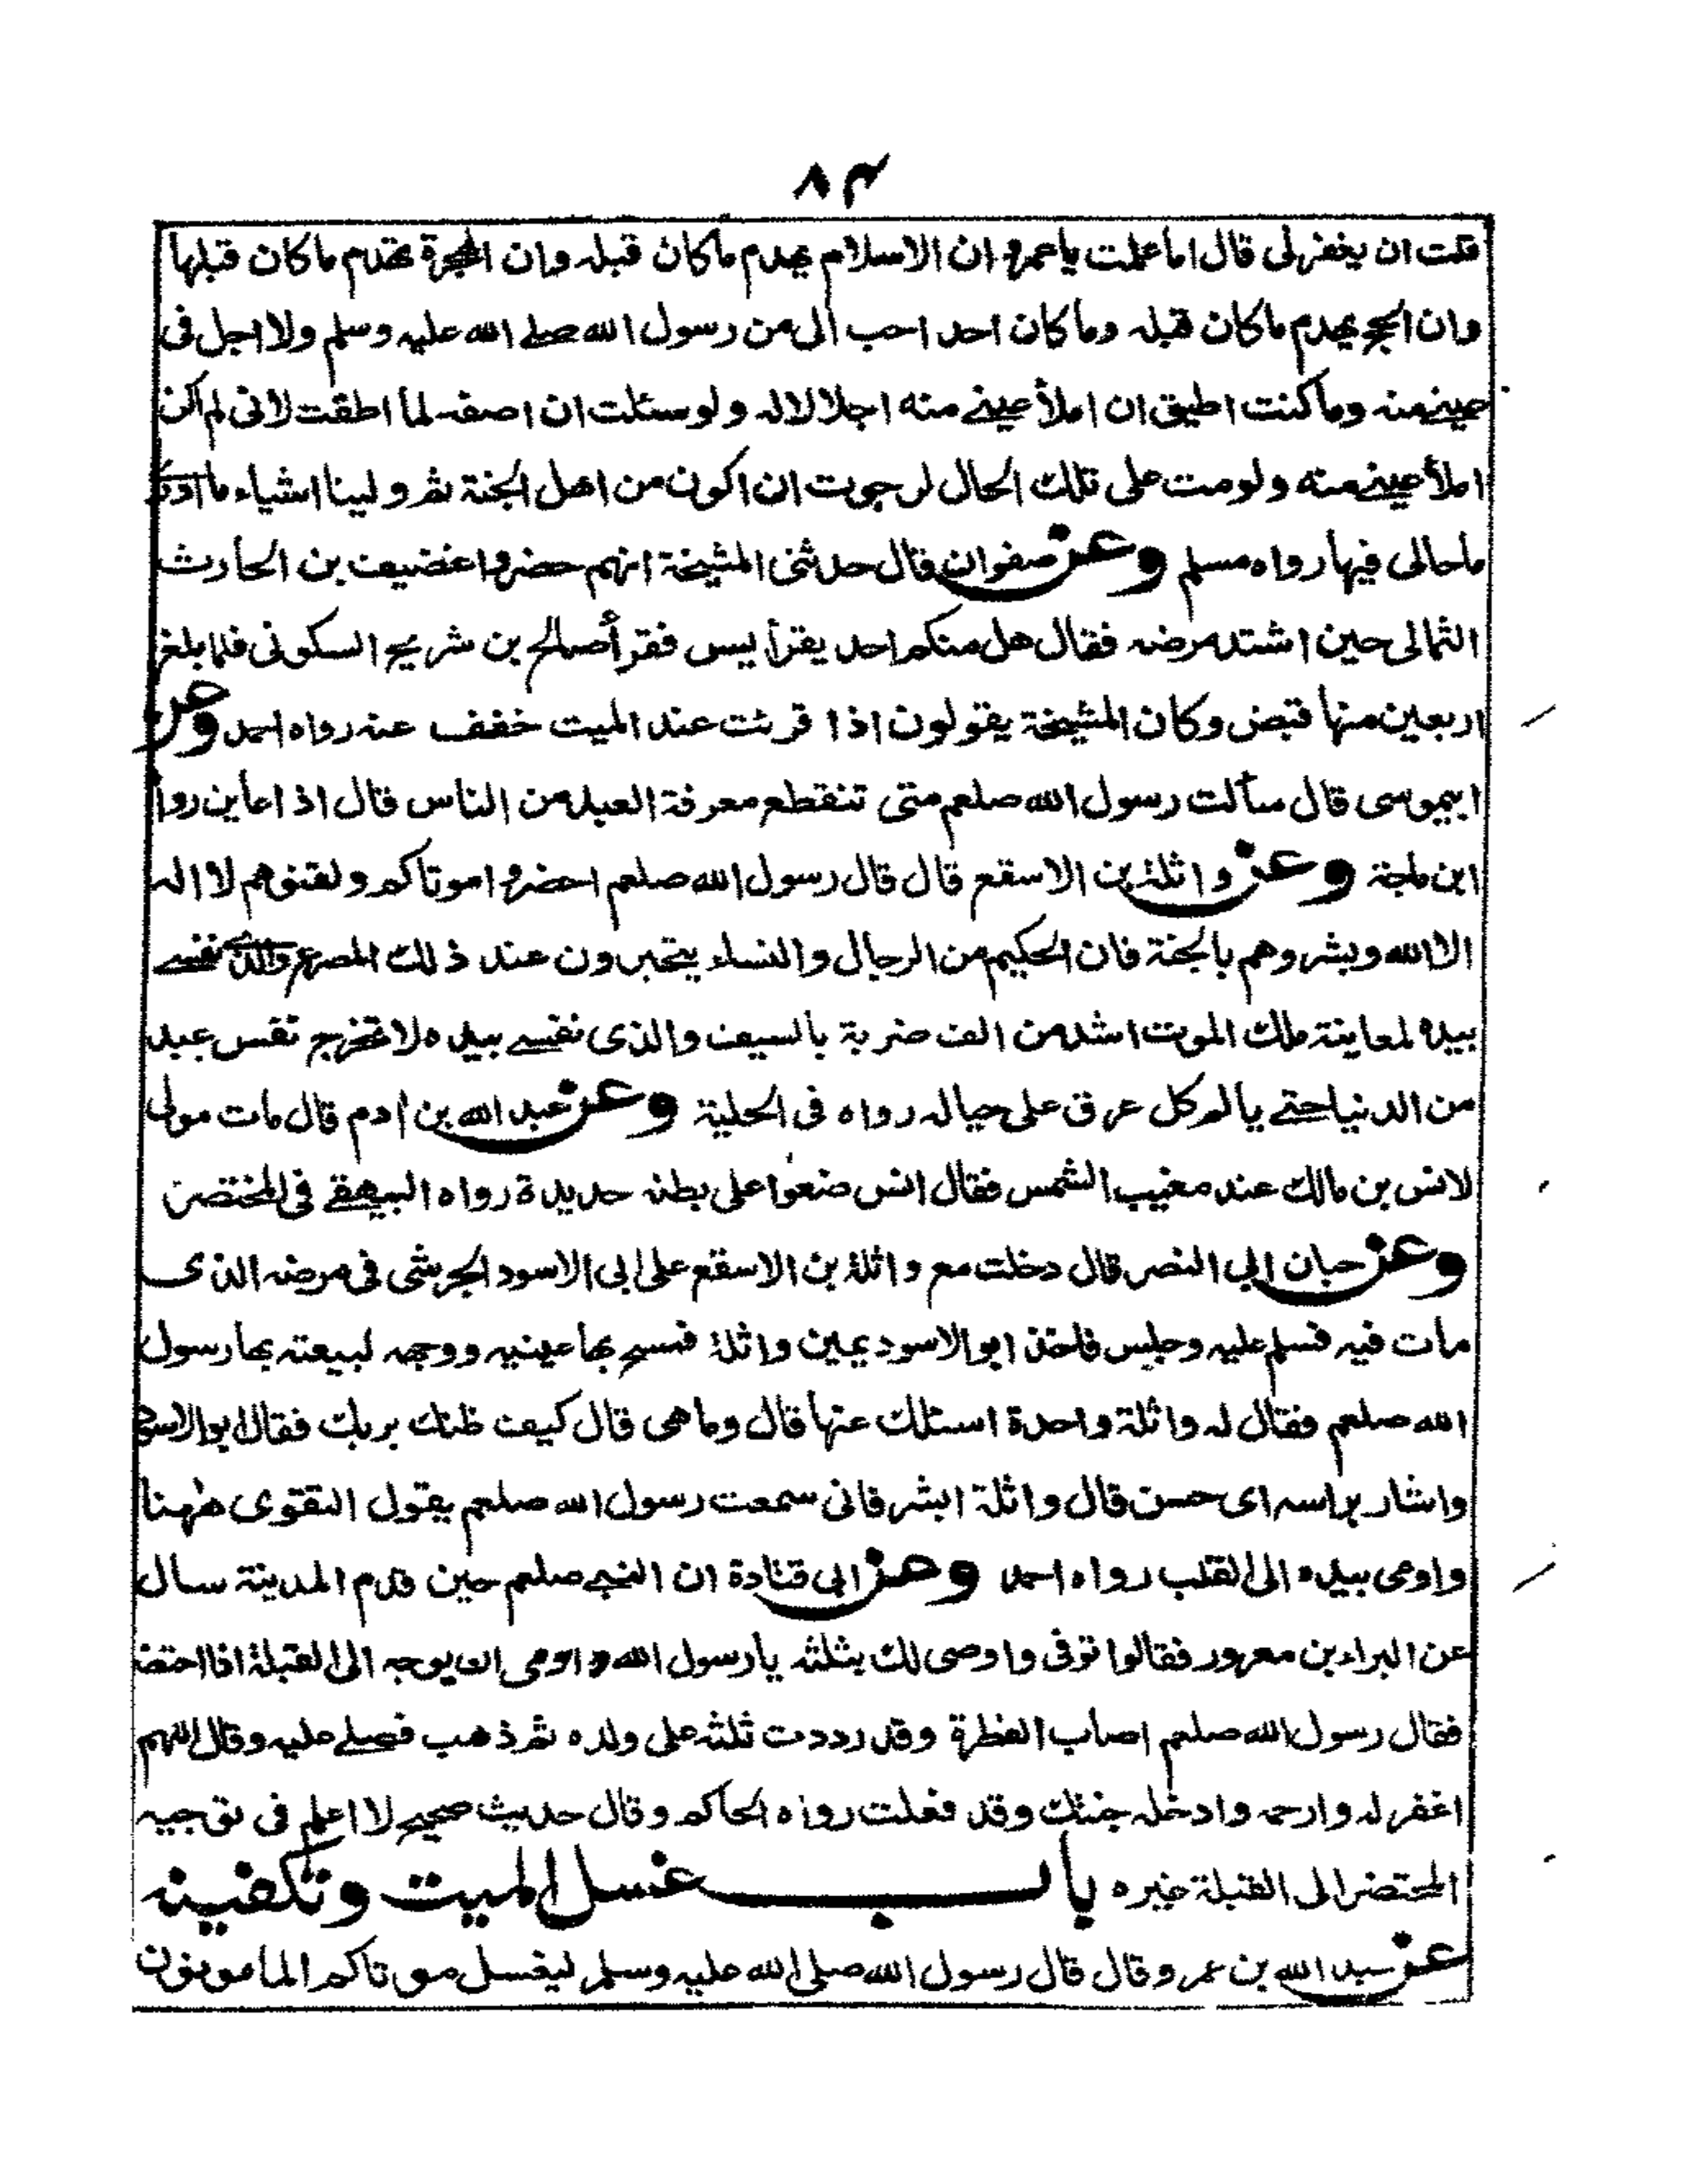 ٨٤
قلت ان يغفر لى قال اما علمت يا عمرو ان الاسلام يهدم ما كان قبله وان الهجرة تهدم ما كان قبلها
وان الحج يهدم ما كان قبله وما كان احد احب الى من رسول الله صلے الله عليه وسلم ولا اجل فى
عينے منه وما كنت اطيق ان املأ عينے منه اجلالا له ولو سئلت ان اصفه لما اطقت لانى لم اكن
املأ عينے منه ولو مت على تلك الحال لرجوت ان اكون من اهل الجنة ثم ولينا اشياء ما ادرى
ما حالى فيها رواه مسلم وعن صفوان قال حدثنى المشيخة انهم حضروا غضيف بن الحارث
الثمالى حين اشتد مرضه فقال هل منكم احد يقرأ يس فقرأ صالح بن شريح السكونى فلما بلغ
اربعين منها قبض وكان المشيخة يقولون اذا قرئت عند الميت خفف عنه رواه احمد وعن
ابيموسى قال سألت رسول الله صلعم متى تنقطع معرفة العبد من الناس قال اذا عاين رواه
ابن ماجة وعن واثلة بن الاسقع قال قال رسول الله صلعم احضروا موتاكم ولقنوهم لا اله
الا الله وبشروهم بالجنة فان الحكيم من الرجال والنساء يتحيرون عند ذلك المصرع والذى نفسے
بيده لمعاينة ملك الموت اشد من الف ضربة بالسيف والذى نفسے بيده لا تخرج نفس عبد
من الدنيا حتے يالم كل عرق على حياله رواه فى الحلية وعن عبد الله بن ادم قال مات مولى
لانس بن مالك عند مغيب الشمس فقال انس ضعوا على بطنه حديدة رواه البيهقے فى المختصر
وعن حبان ابى النضر قال دخلت مع واثلة بن الاسقع على ابى الاسود الجرشى فى مرضه الذى
مات فيه فسلم عليه وجلس فاخذ ابو الاسود يمين واثلة فمسح بها عينيه ووجهه لبيعته بها رسول
الله صلعم فقال له واثلة واحدة اسئلك عنها قال وما هى قال كيف ظنك بربك فقال ابو الاسود
واشار براسه اى حسن قال واثلة ابشر فانى سمعت رسول الله صلعم يقول التقوى ههنا
واومى بيده الى القلب رواه احمد وعن ابى قتادة ان النبے صلعم حين قدم المدينة سال
عن البراء بن معرور فقالوا توفى واوصى لك بثلثه يا رسول الله واوصى ان يوجه الى القبلة اذا احتضر
فقال رسول الله صلعم اصاب الفطرة وقد رددت ثلثه على ولده ثم ذهب فصلے عليه وقال اللهم
اغفر له وارحمه وادخله جنتك وقد فعلت رواه الحاكم وقال حديث صحيح لا اعلم فى توجيه
المحتضر الى القبلة غيره باب غسل الميت وتكفينه
عن عبد الله بن عمر وقال قال رسول الله صلى الله عليه وسلم ليغسل موتاكم المامونون